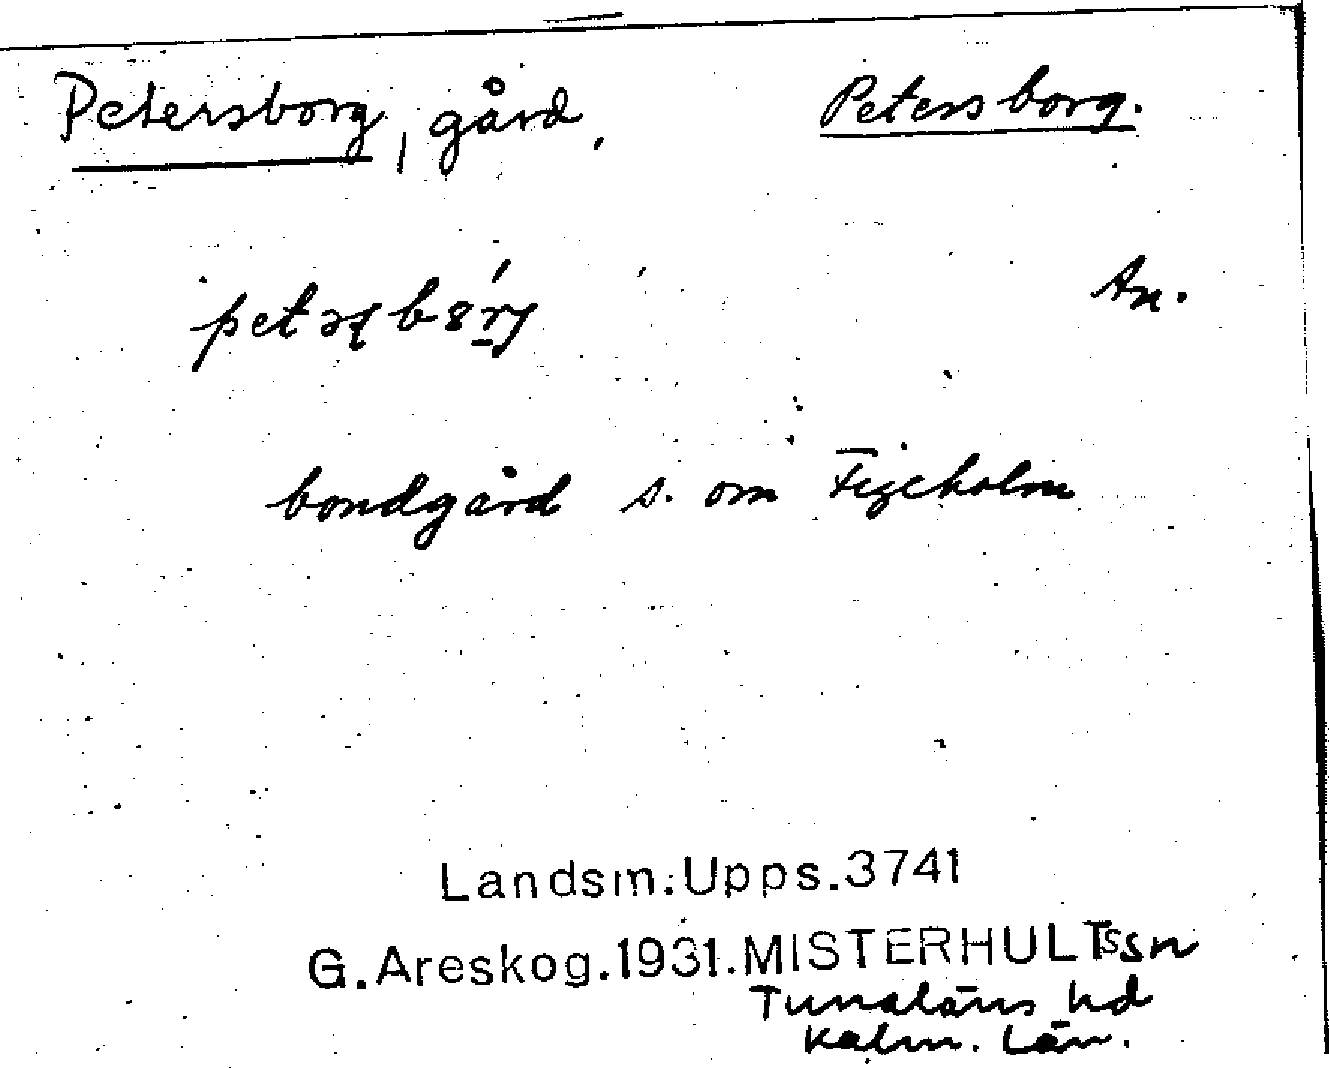 Petersborg, gård,
Petersborg.
An.
bondgård s. om Figeholm
Landsm.:Upps.3741
G.Areskog.1931.MISTERHULTssn
Tunaläns hd
Kalm. län.